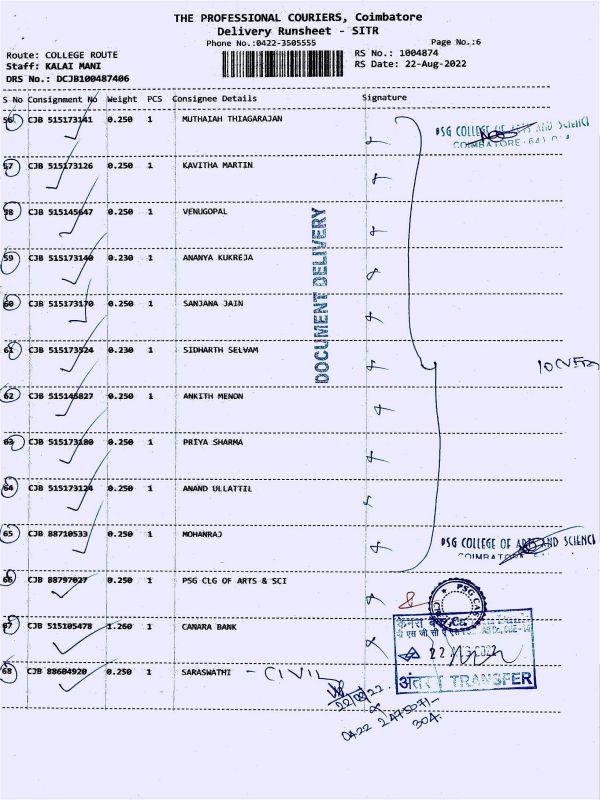 THE PROFESSIONAL COURIERS, Coimbatore
Delivery Runsheet - SITR
Phone No.:0422-3505555
Page No.:6
Route: COLLEGE ROUTE
RS No.: 1004874
Staff: KALAI MANI
RS Date: 22-Aug-2022
DRS No.: DCJB100487406
S No Consignment No Weight PCS Consignee Details Signature
56 CJB 515173141 0.250 1 MUTHAIAH THIAGARAJAN
PSG COLLEGE OF ARTS AND SCIENCE
COIMBATORE
57 CJB 515173126 0.250 1 KAVITHA MARTIN
58 CJB 515145647 0.250 1 VENUGOPAL
DOCUMENT DELIVERY
59 CJB 515173140 0.230 1 ANANYA KUKREJA
60 CJB 515173170 0.250 1 SANJANA JAIN
61 CJB 515173524 0.230 1 SIDHARTH SELVAM
62 CJB 515145827 0.250 1 ANKITH MENON
63 CJB 515173180 0.250 1 PRIYA SHARMA
64 CJB 515173124 0.250 1 ANAND ULLATTIL
65 CJB 88710533 0.250 1 MOHANRAJ
PSG COLLEGE OF ARTS AND SCIENCE
66 CJB 88797027 0.250 1 PSG CLG OF ARTS & SCI
67 CJB 515105478 1.260 1 CANARA BANK
22
68 CJB 88604920 0.250 1 SARASWATHI - CIVIL
TRANSFER
22/08/22
0422 2475071-
304.